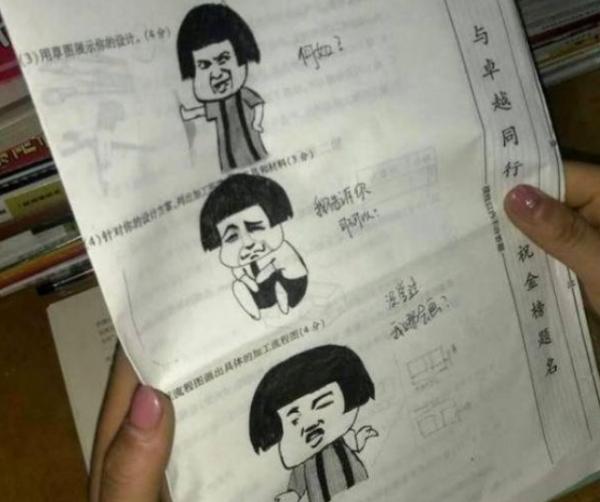 (3)用草图展示你的设计。(4分)
何如？
(4)针对你的设计方案，列出加工
材料(3分)
我告诉你
可可以？
没学过
我哪会画？
流程图画出具体的加工流程图(4分)
与卓越同行
祝金榜题名